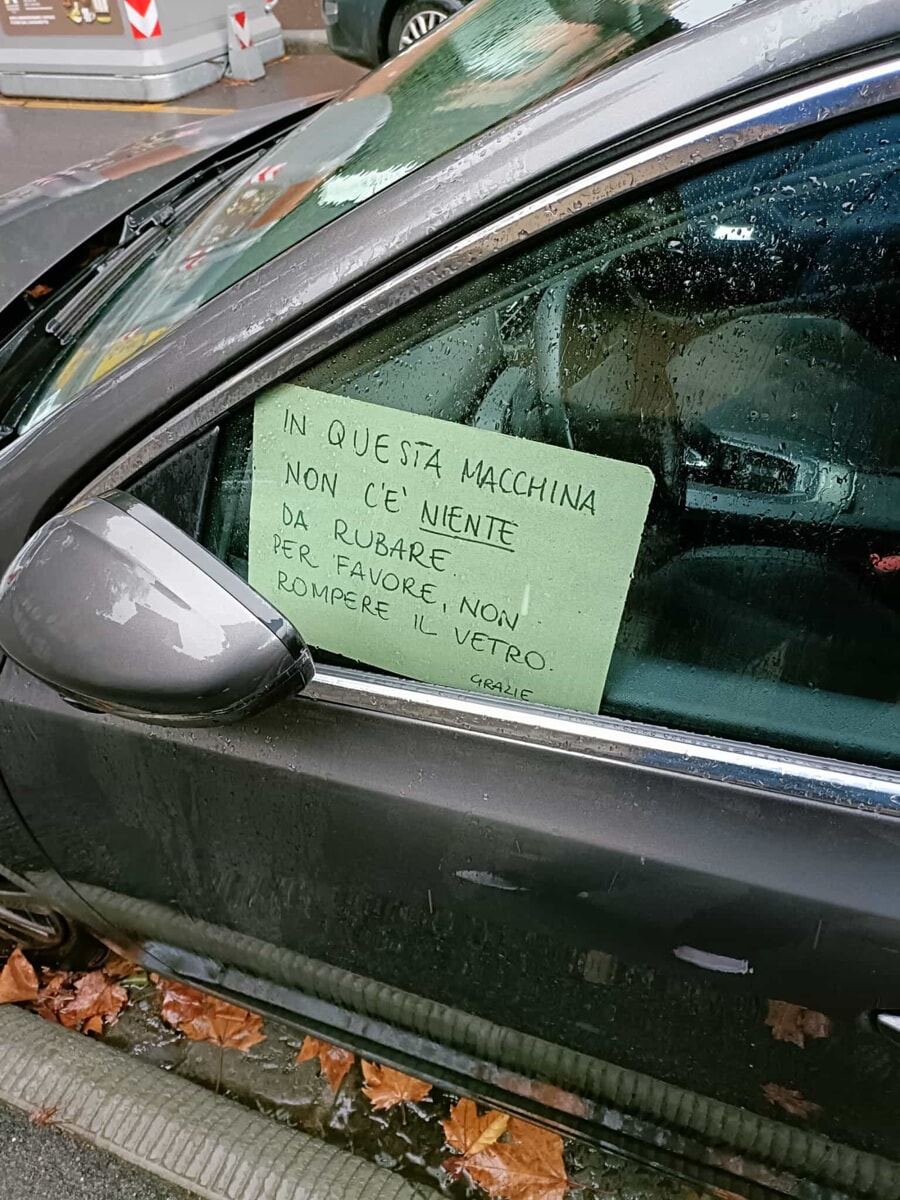 IN QUESTA MACCHINA
NON C'E' NIENTE
DA RUBARE.
PER FAVORE, NON
ROMPERE IL VETRO.
GRAZIE